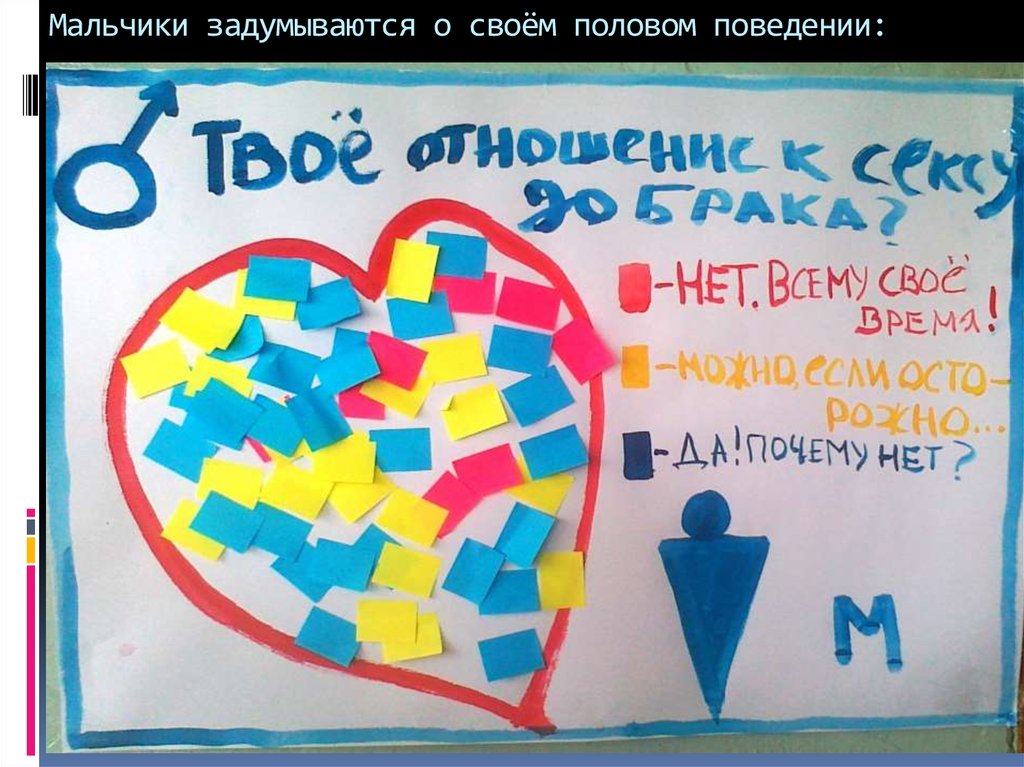 Мальчики задумываются о своём половом поведении:
Твоё отношение к сексу
до брака?
-НЕТ. ВСЕМУ СВОЁ
ВРЕМЯ!
-МОЖНО, ЕСЛИ ОСТО-
РОЖНО...
-ДА! ПОЧЕМУ НЕТ?
М